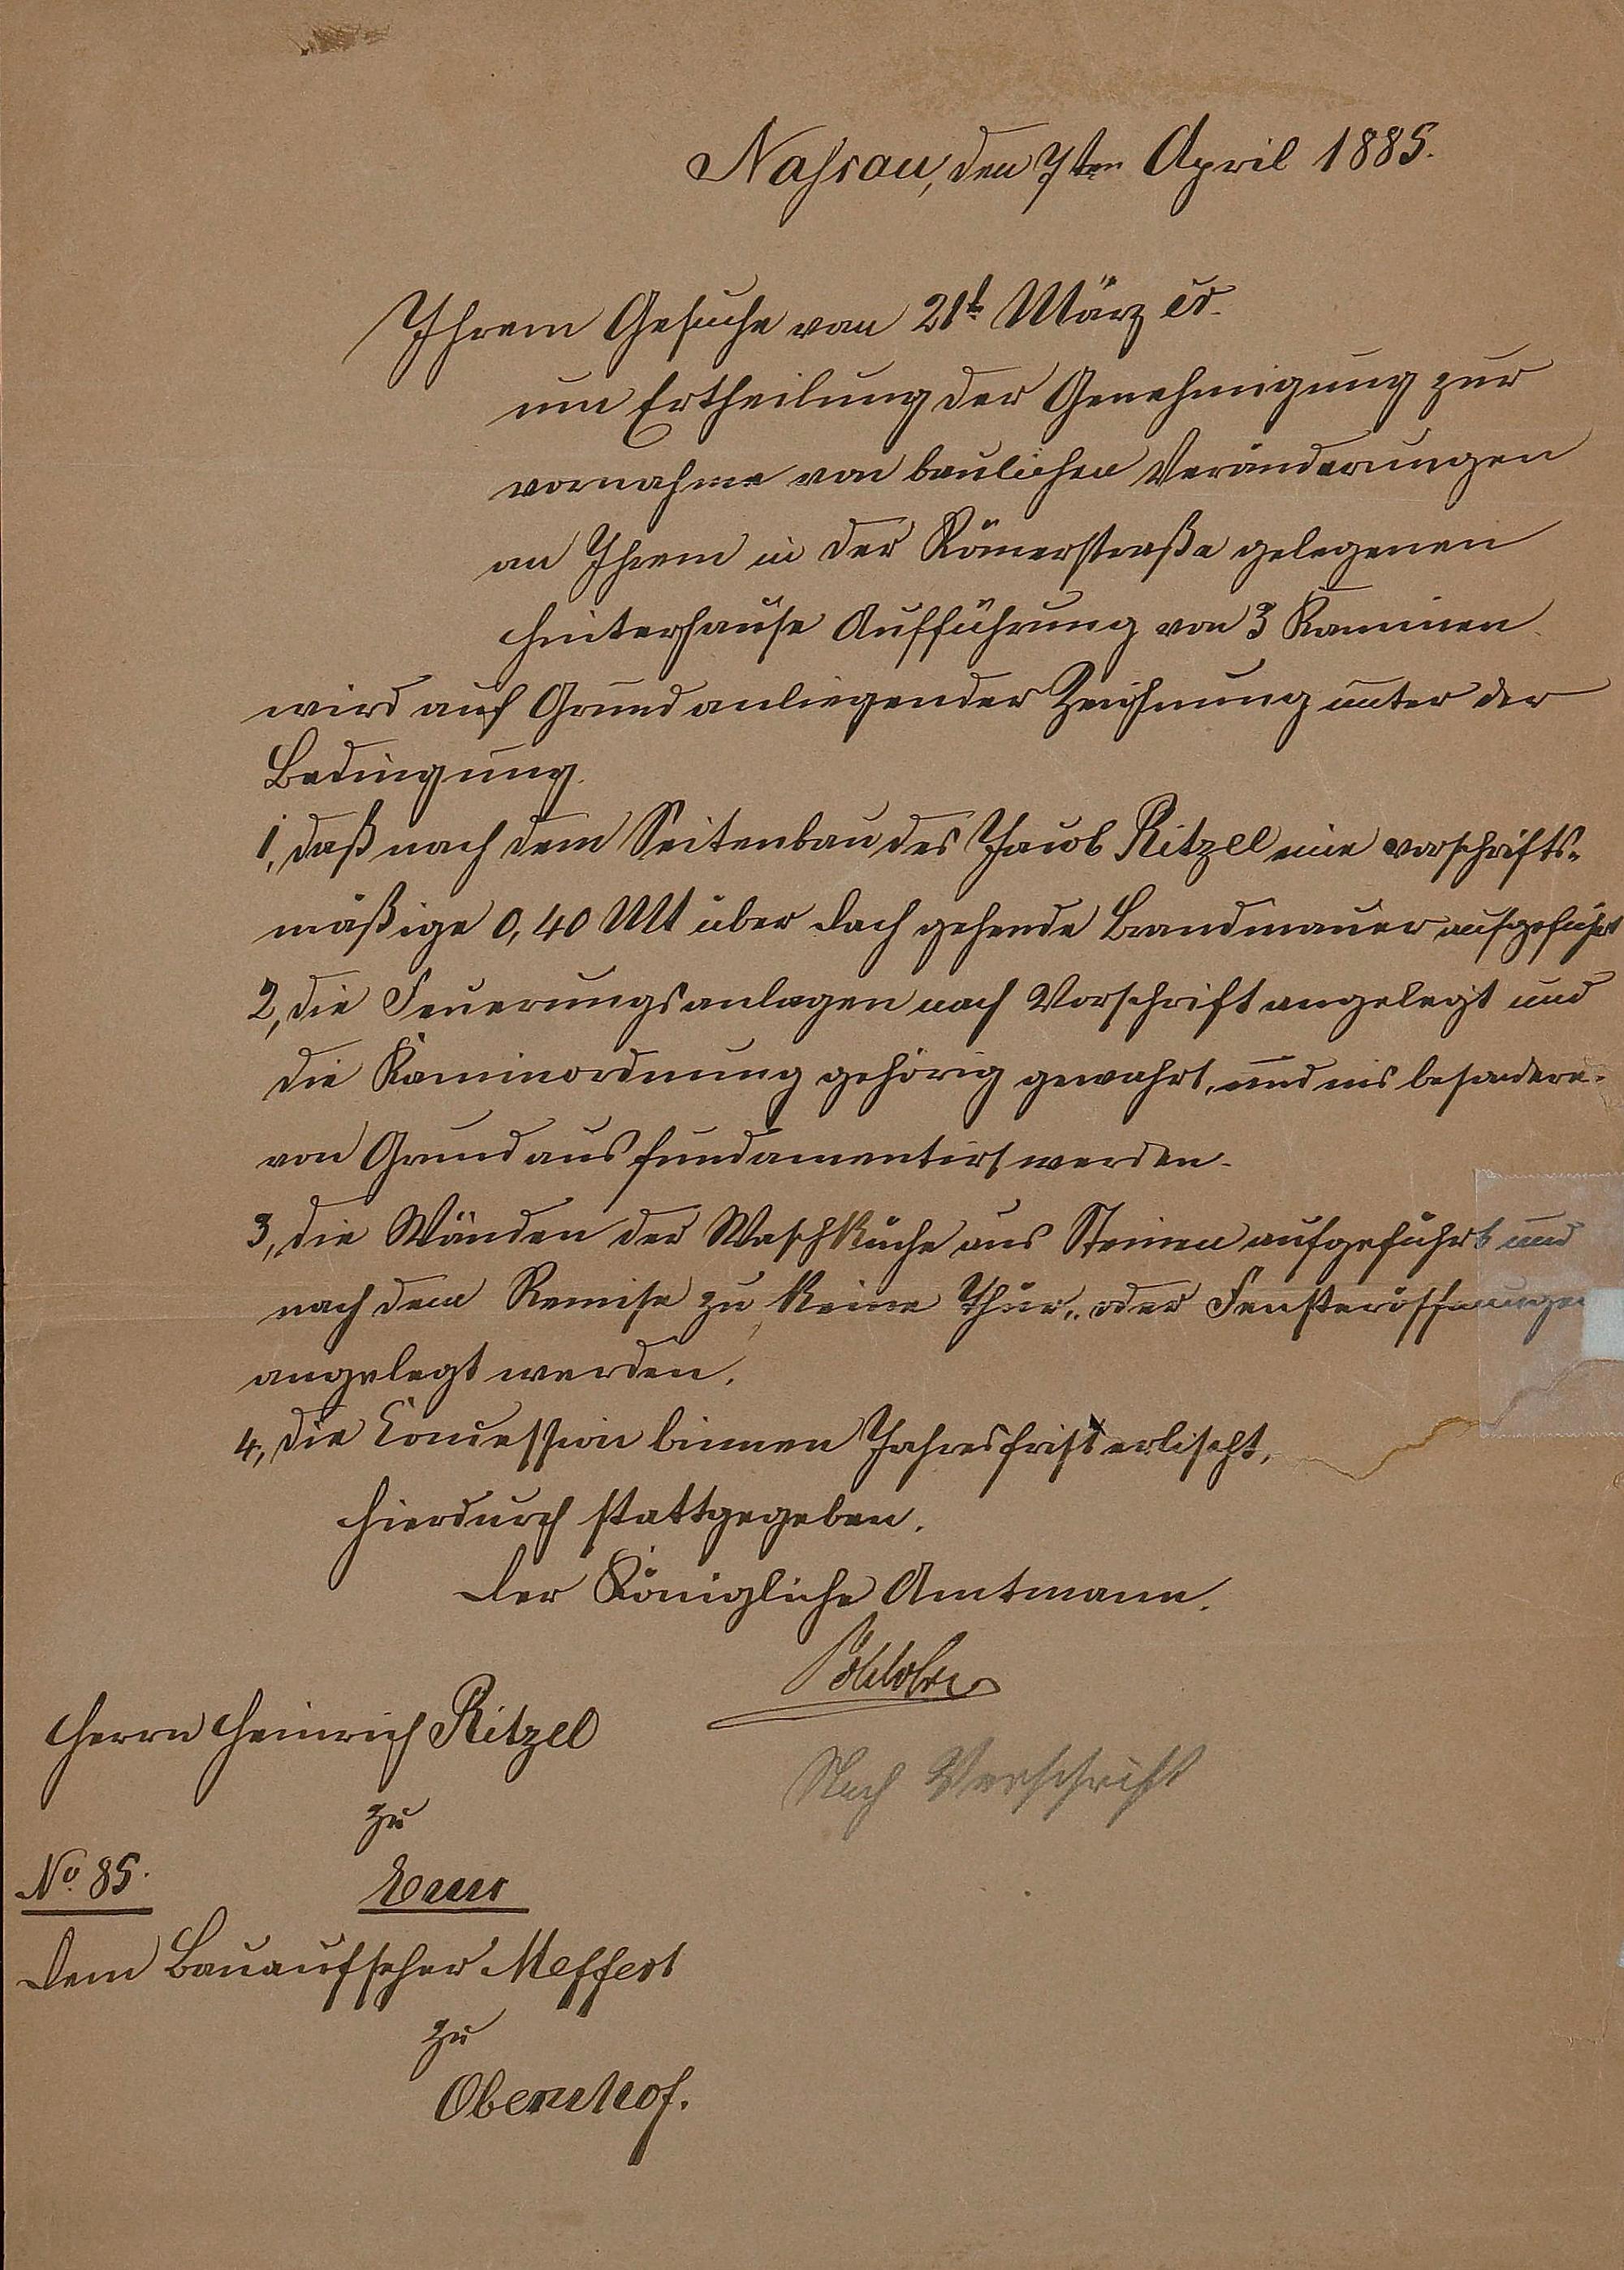 Nassau, den 7ten April 1885.
Ihrem Gesuche vom 21t März cr.
um Ertheilung der Genehmigung zur
vornahme von baulichen Veränderungen
an Ihrem in der Römerstraße gelegenen
Hinterhause Aufführung von 3 Kaminen
wird auf Grund anliegender Zeichnung unter der
Bedingung.
1, daß nach dem Seitenbau des Jacob Ritzel eine vorschrifts-
mäßige 0,40 Mt über Dach gehende Brandmauer aufgeführt
2, die Feuerungsanlagen nach Vorschrift angelegt und
die Kaminordnung gehörig gewahrt, und ins besondere
von Grund aus fundamentirt werden.
3, die Wänden der Waschküche aus Steinen aufgeführt und
nach dem Remise zu keine Thür- oder Fensteröffnungen
angelegt werden.
4, die Concession binnen Jahresfrist erlischt,
hierdurch stattgegeben.
Der Königliche Amtmann.
Herrn Heinrich Ritzel
Nach Vorschrift
zu
No. 85.
Ems
Dem Bauaufseher Meffert
zu
Obernhof.